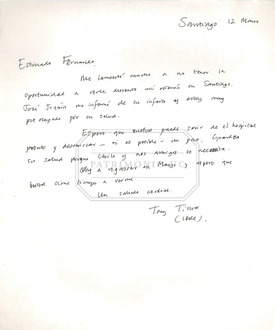 Santiago 12 Marzo
Estimado Fernando,
Me lamento mucho a no tener la
oportunidad a verle durante mi estadía en Santiago.
José Joaquín me informó de su infarto y estoy muy
preocupado por su salud.
Espero que usted puede salir de el hospital
pronto y descansar – si es posible – un poco. Guardea
su salud porque Chile y sus amigos le necesita.
Voy a regresar en Mayo y espero que
usted tiene tiempo a verme.
Un saludo cordial,
PATRIMONIO